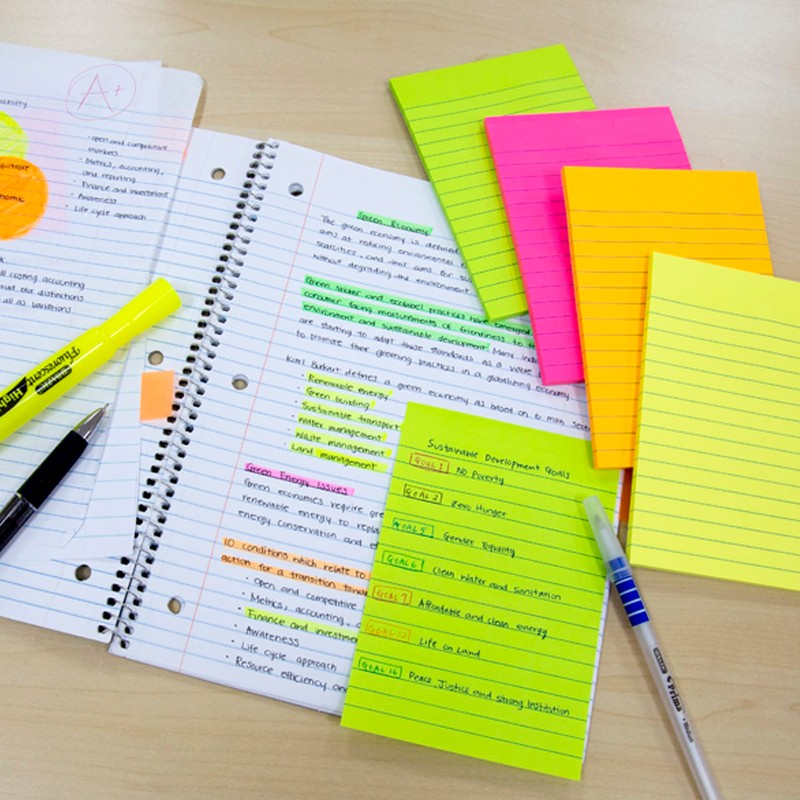 A+
open and competitive
markets
Metrics, accounting,
and reporting
Finance and investment
Awareness
Life cycle approach
all costing accounting
Fluorescent
Green Economy
The green economy is defined
aims at reducing environmental
scarcities, and that aims for
without degrading the environment
Green sticker and ecolabel practices have emerged
consumer facing measurements of friendliness to
environment and sustainable development. Many
are starting to adopt these standards as a
to promote their greening practices in a globalizing economy
Karl Burkart defines a green economy as based on 6 main
Renewable energy
Green building
Sustainable transport
Water management
Waste management
Land management
Green Energy Issues
Green economies require
renewable energy to
energy conservation and
10 conditions which relate to
action for a transition
open and competitive
Metrics, accounting,
Finance and
Awareness
Life cycle approach
Resource efficiency
Sustainable Development Goals
GOAL 1 No Poverty
GOAL 2 Zero Hunger
GOAL 5 Gender Equality
GOAL 6 Clean Water and Sanitation
GOAL 7 Affordable and clean energy
Life on Land
GOAL 16 Peace, Justice and strong Institution
Prima